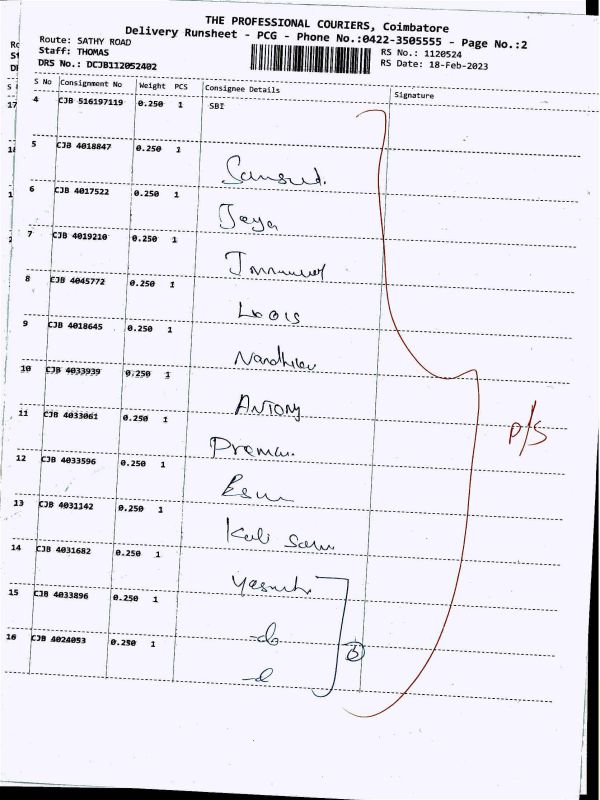 THE PROFESSIONAL COURIERS, Coimbatore
Delivery Runsheet - PCG - Phone No.:0422-3505555 - Page No.:2
Route: SATHY ROAD
RS No.: 1120524
Staff: THOMAS
RS Date: 18-Feb-2023
DRS No.: DCJB112052402
S No Consignment No Weight PCS Consignee Details Signature
4 CJB 516197119 0.250 1 SBI
5 CJB 4018847 0.250 1
6 CJB 4017522 0.250 1
Jaya
7 CJB 4019210 0.250 1
8 CJB 4045772 0.250 1
9 CJB 4018645 0.250 1
10 CJB 4033939 0.250 1
ANTONY
11 CJB 4033061 0.250 1
12 CJB 4033596 0.250 1
13 CJB 4031142 0.250 1
14 CJB 4031682 0.250 1
15 CJB 4033896 0.250 1
16 CJB 4024053 0.250 1
P/S